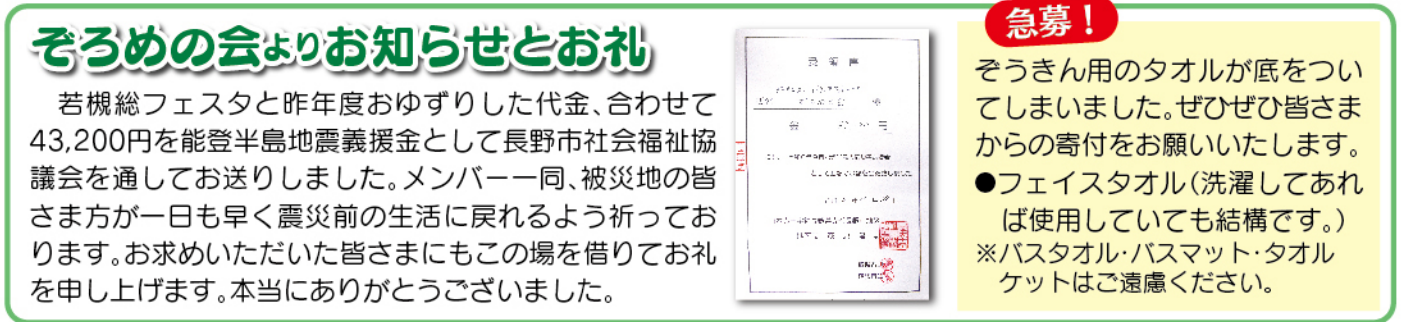 ぞろめの会よりお知らせとお礼
若槻総フェスタと昨年度おゆずりした代金、合わせて
43,200円を能登半島地震義援金として長野市社会福祉協
議会を通してお送りしました。メンバー一同、被災地の皆
さま方が一日も早く震災前の生活に戻れるよう祈ってお
ります。お求めいただいた皆さまにもこの場を借りてお礼
を申し上げます。本当にありがとうございました。
受領書
急募！
ぞうきん用のタオルが底をつい
てしまいました。ぜひぜひ皆さま
からの寄付をお願いいたします。
●フェイスタオル(洗濯してあれ
ば使用していても結構です。)
※バスタオル・バスマット・タオル
ケットはご遠慮ください。